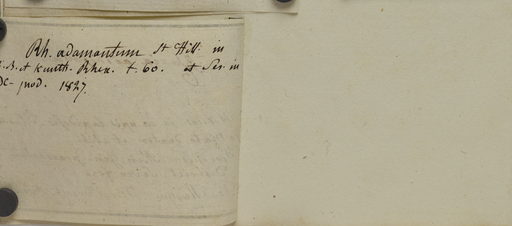 Rh. adamantum St Hill. in
et Kunth. Rhex. t. 60. et Ser. in
DC- prod. 1827.